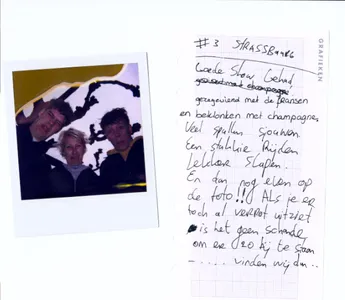 #3 STRASSBURG
Goede Show Gehad
gezegevierd met de fransen
en beklonken met champagne,
Veel spullen sjouwen.
Een stukkie Rijden
Lekker Slapen.
En dan nog even op
de foto!! Als je er
toch al verrot uitziet
is het geen schande
om er zo bij te staan
- ..... vinden wij dan..
GRAFIEKEN